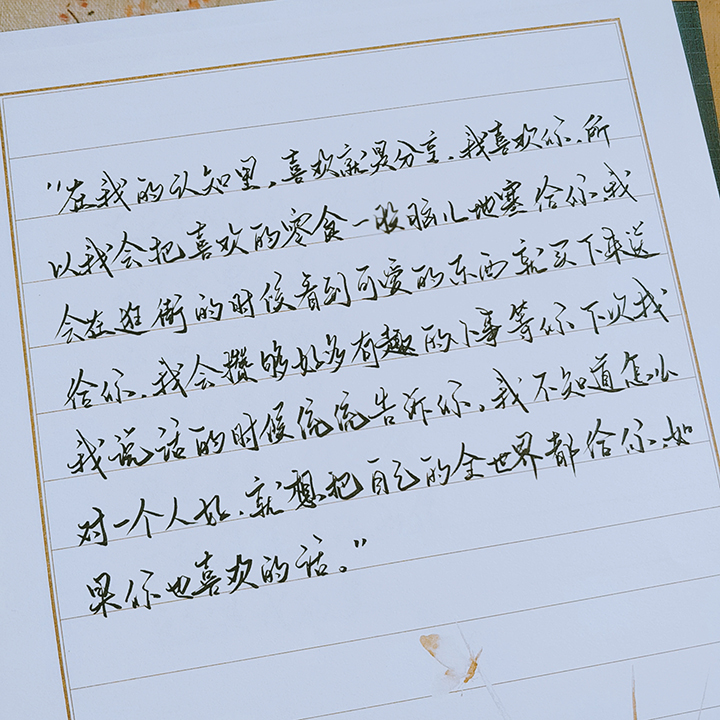 “在我的认知里，喜欢就是分享，我喜欢你，所
以我会把喜欢的零食一股脑儿地塞给你，我
会在逛街的时候看到可爱的东西就买下来送
给你，我会攒够好多有趣的小事等你下次找
我说话的时候统统告诉你，我不知道怎么
对一个人好，就想把自己的全世界都给你，如
果你也喜欢的话。”